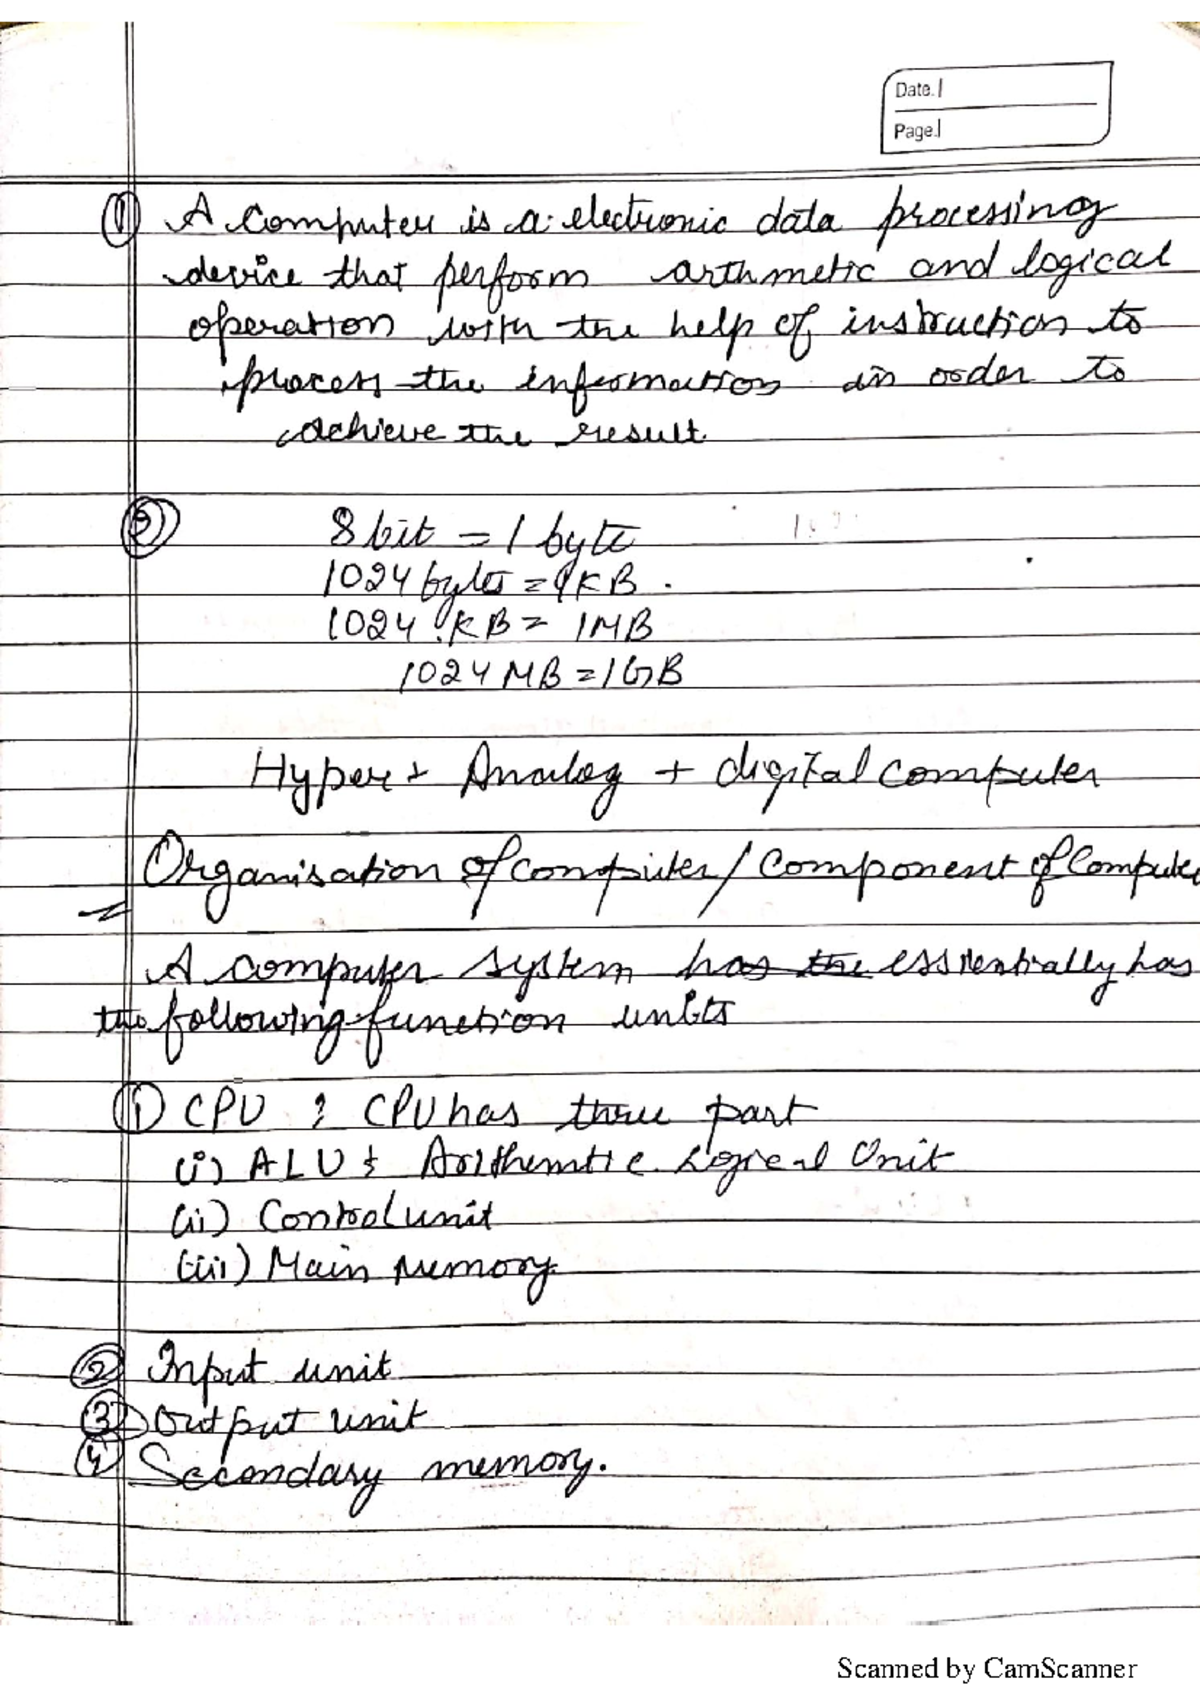 Date.
Page.
① A Computer is a electronic data processing
device that perform arthmetic and logical
operation with the help of instruction to
process the information in order to
achieve the result
②
8 bit = 1 byte
1024 bytes = 1KB.
1024 KB = 1MB
1024 MB = 1GB
Hyper Analog + digital computer
Organisation of computer / Component of Computer
A computer system has the essentially has
the following function units
① CPU : CPU has three part
(i) ALU : Arithemtic Logical Unit
(ii) Control unit
(iii) Main Memory
② Input unit
③ Output unit
④ Secondary memory.
Scanned by CamScanner